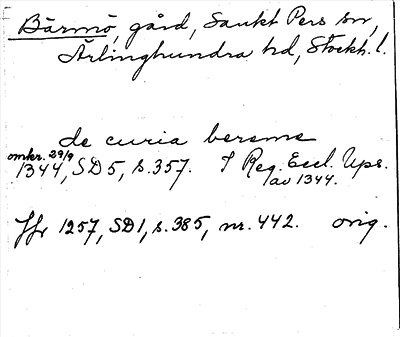 Bärmö, gård, Sankt Pers sn,
Ärlinghundra hd, Stockh. l.
de curia bersme
omkr. 29/9
1344, SD 5, s. 357. I Reg. Eccl. Ups.
av 1344.
Jfr 1257, SD 1, s. 385, nr. 442. orig.